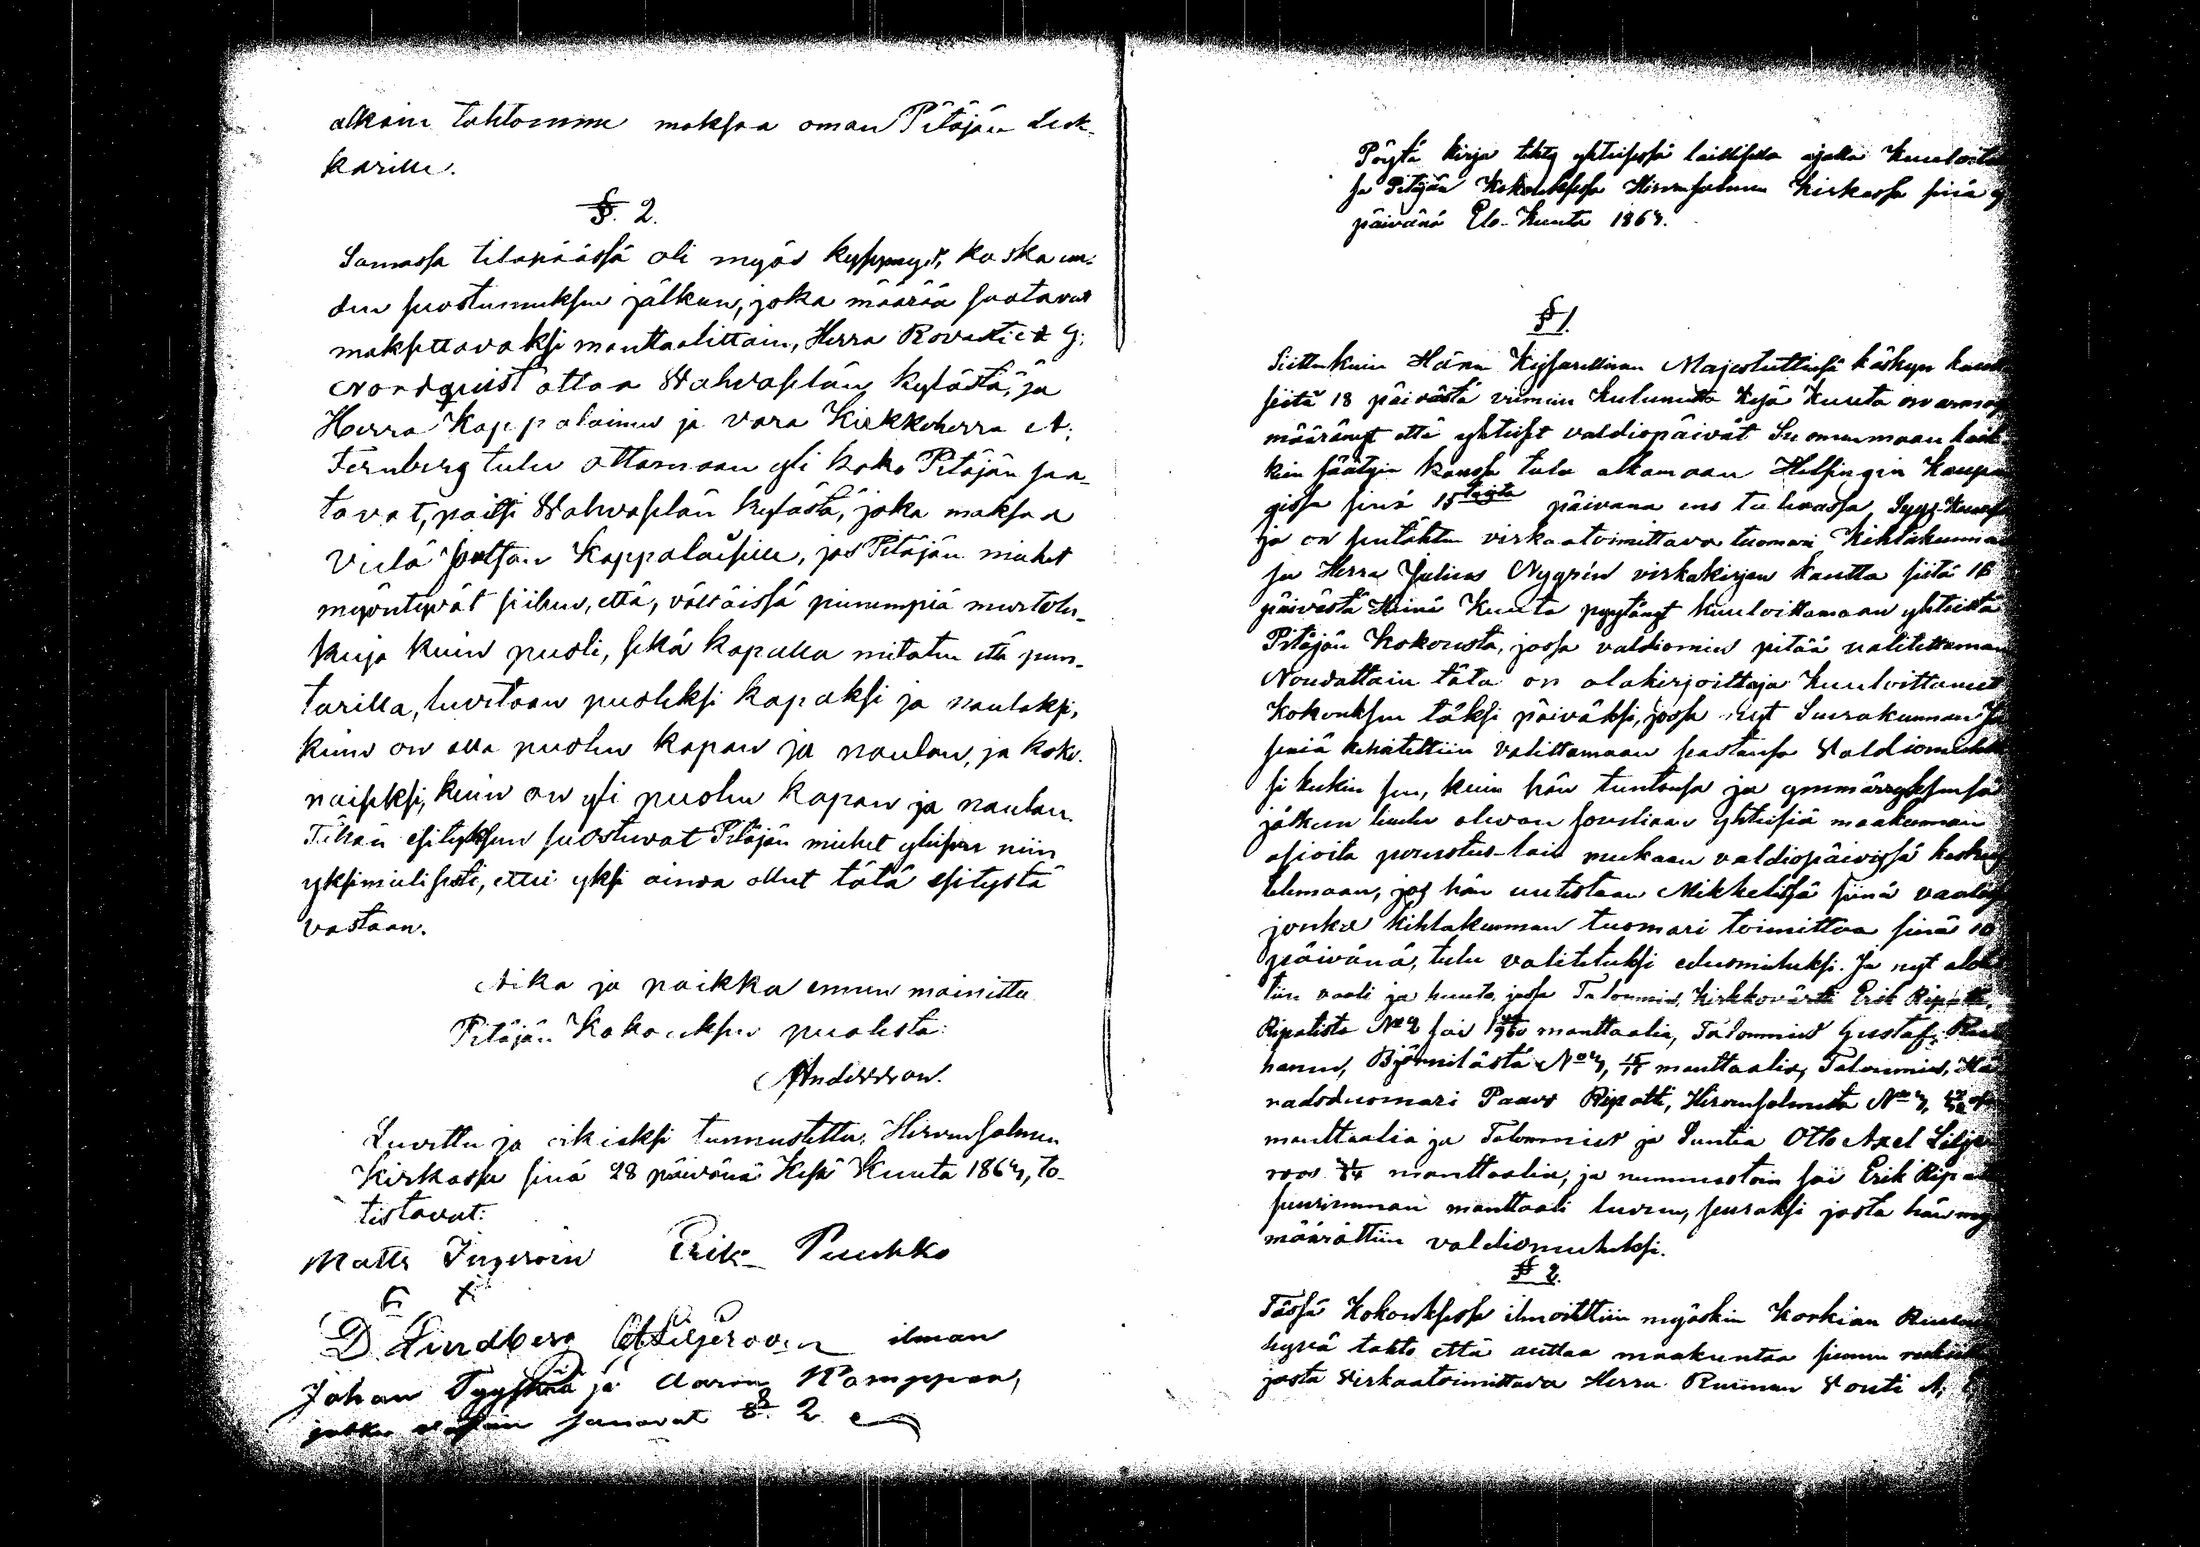 alkain tahtomme maksaa oman Pitäjän Luk-
karille.
§. 2.
Samassa tilapäässä oli myös kysymys, koska uu-
den suostumuksen jälkeen, joka määrää saatavat
maksettavaksi manttaalittain, Herra Rovasti G:
Nordquist ottaa Wahvaselän kylästä, ja
Herra Kappalainen ja vara Kirkkoherra A:
Fernberg tulee ottamaan yli koko Pitäjän saa-
tavat, paitsi Wahvaselän kylästä, joka maksaa
vielä Kappalaiselle, jos Pitäjän miehet
myöntyvät siihen, että, vältäissä pienempiä murtolu-
kuja kuin puoli, sekä kapalla mitaten että pun-
tarilla, luetaan puoleksi kapaksi ja naulaksi,
kuin on alla puolen kapan ja naulan, ja koko-
naiseksi, kuin on yli puolen kapan ja naulan.
Tähän esitykseen suostuvat Pitäjän miehet yleisen niin
yksimielisesti, ettei yksi ainoa ollut tätä esitystä
vastaan.
Aika ja paikka ennen mainittu
Pitäjän Kokouksen puolesta:
Andersson.
Luettu ja oikiaksi tunnustettu, Hirvensalmen
Kirkossa sinä 28 päivänä Kesä Kuuta 1864, to-
distavat:
Matts Inzeroin Erik Puukko
D. Lindberg A Liljeroos ilman
Johan Tyyskä ja Aaron Kamppon,
jotka sanovat §. 2
Pöytä kirja tehty yhteisessä laillisella ajalla Kuuloite
sa Pitäjän Kokouksessa Hirvensalmen Kirkossa sinä
päivänä Elo-Kuuta 1864.
§ 1.
Siittenkuin Hänen Kejsarillinen Majestettinsä käskyn kautt
siitä 18 päivästä viimein kulunutta Kesä Kuuta on armos
määrännyt että yhteiset valdiopäivät Suomenmaan kaik-
kien säätyin kanssa tulee alkamaan Helsingin Kaupun
gissa sinä 15 päivänä ens tulevassa Syys-Kuussa
ja on sentähden virkaatoimittava tuomari Kihlakunnas
sa Herra Julius Nygrén virkakirjan kautta siitä 16
päivästä Heinä Kuuta pyytänyt kuuloittamaan yhteistä
Pitäjän Kokousta, jossa valdiomies pitää valitettaman
Noudattain tätä on alakirjoittaja kuuloittanut
Kokouksen täksi päiväksi, jossa nyt Seurakunnan Jä
seniä kehoitettiin valittamaan seastansa Waldiomiehek
si kukin sen, kuin hän tuntonsa ja ymmärryksensä
jälkeen luulee olevan soveliaan yhteisiä maakunnan
asioita perustus-lain mukaan valdiopäivissä keskus
telemaan, jos hän uutestaan Mikkelissä siinä vaalis
jonka kihlakunnan tuomari toimittaa sinä 10
päivänä, tulee valituksi edusmieheksi. Ja nyt aloi
tiin vaali ja huuto, jossa Talonmies, Kirkkovärti Erik Ripatti,
Ripatista No 2 sai manttaalia, Talonmies Gustaf
hanen, Björnilästä No 4, manttaalia, Talonmies, Hä
radsduomari Paavo Ripatti, Hirvensalmesta No 4,
manttaalia ja Talonmies ja Suntia Otto Axel Lilje
roos manttaalia, ja nummestoin sai Erik Ripatti
suurimman manttaali luvun, seuraksi josta hän myö
määrättiin valdiomieheksi.
§ 2.
Tässä Kokouksessa ilmoitettiin myöskin Korkian Ruunun
hyvä tahto että auttaa maakuntaa
josta Virkaatoimittava Herra Ruunun Vouti A.